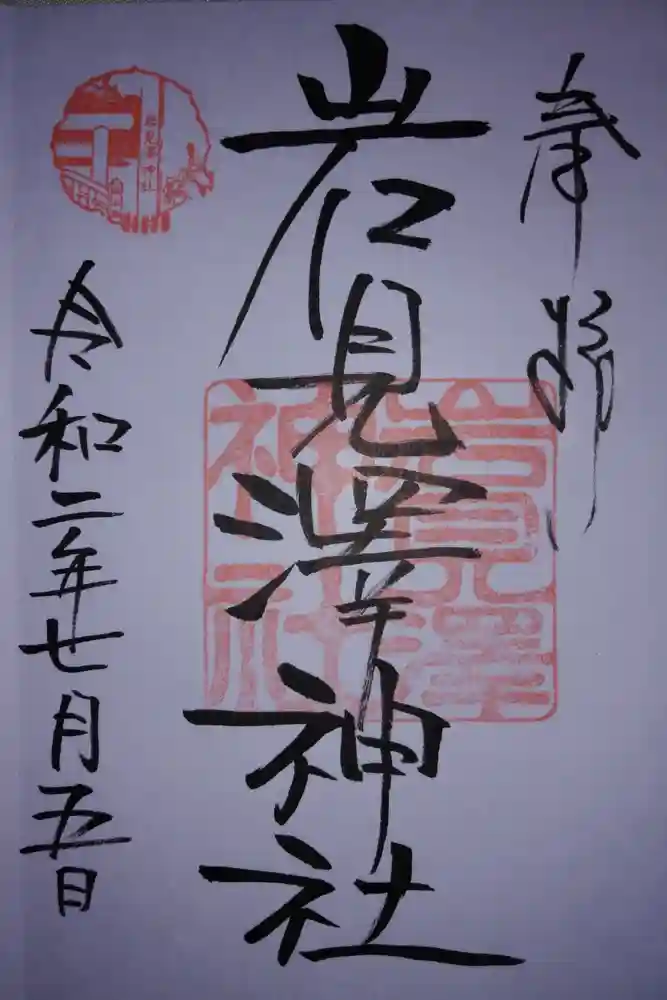 奉拝
岩見澤神社
岩見澤神社
令和二年七月五日
岩見澤神社